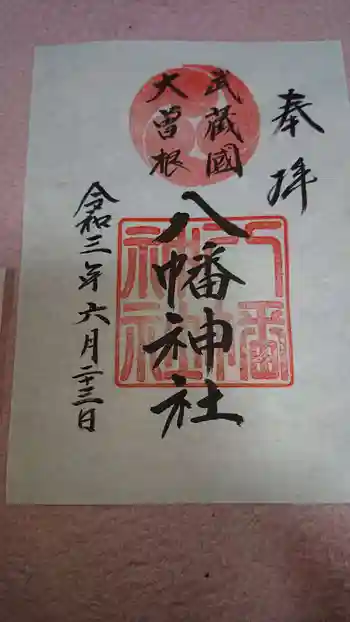 奉拝
武蔵國
大曽根
八幡神社
八幡
神社
令和三年六月二十三日